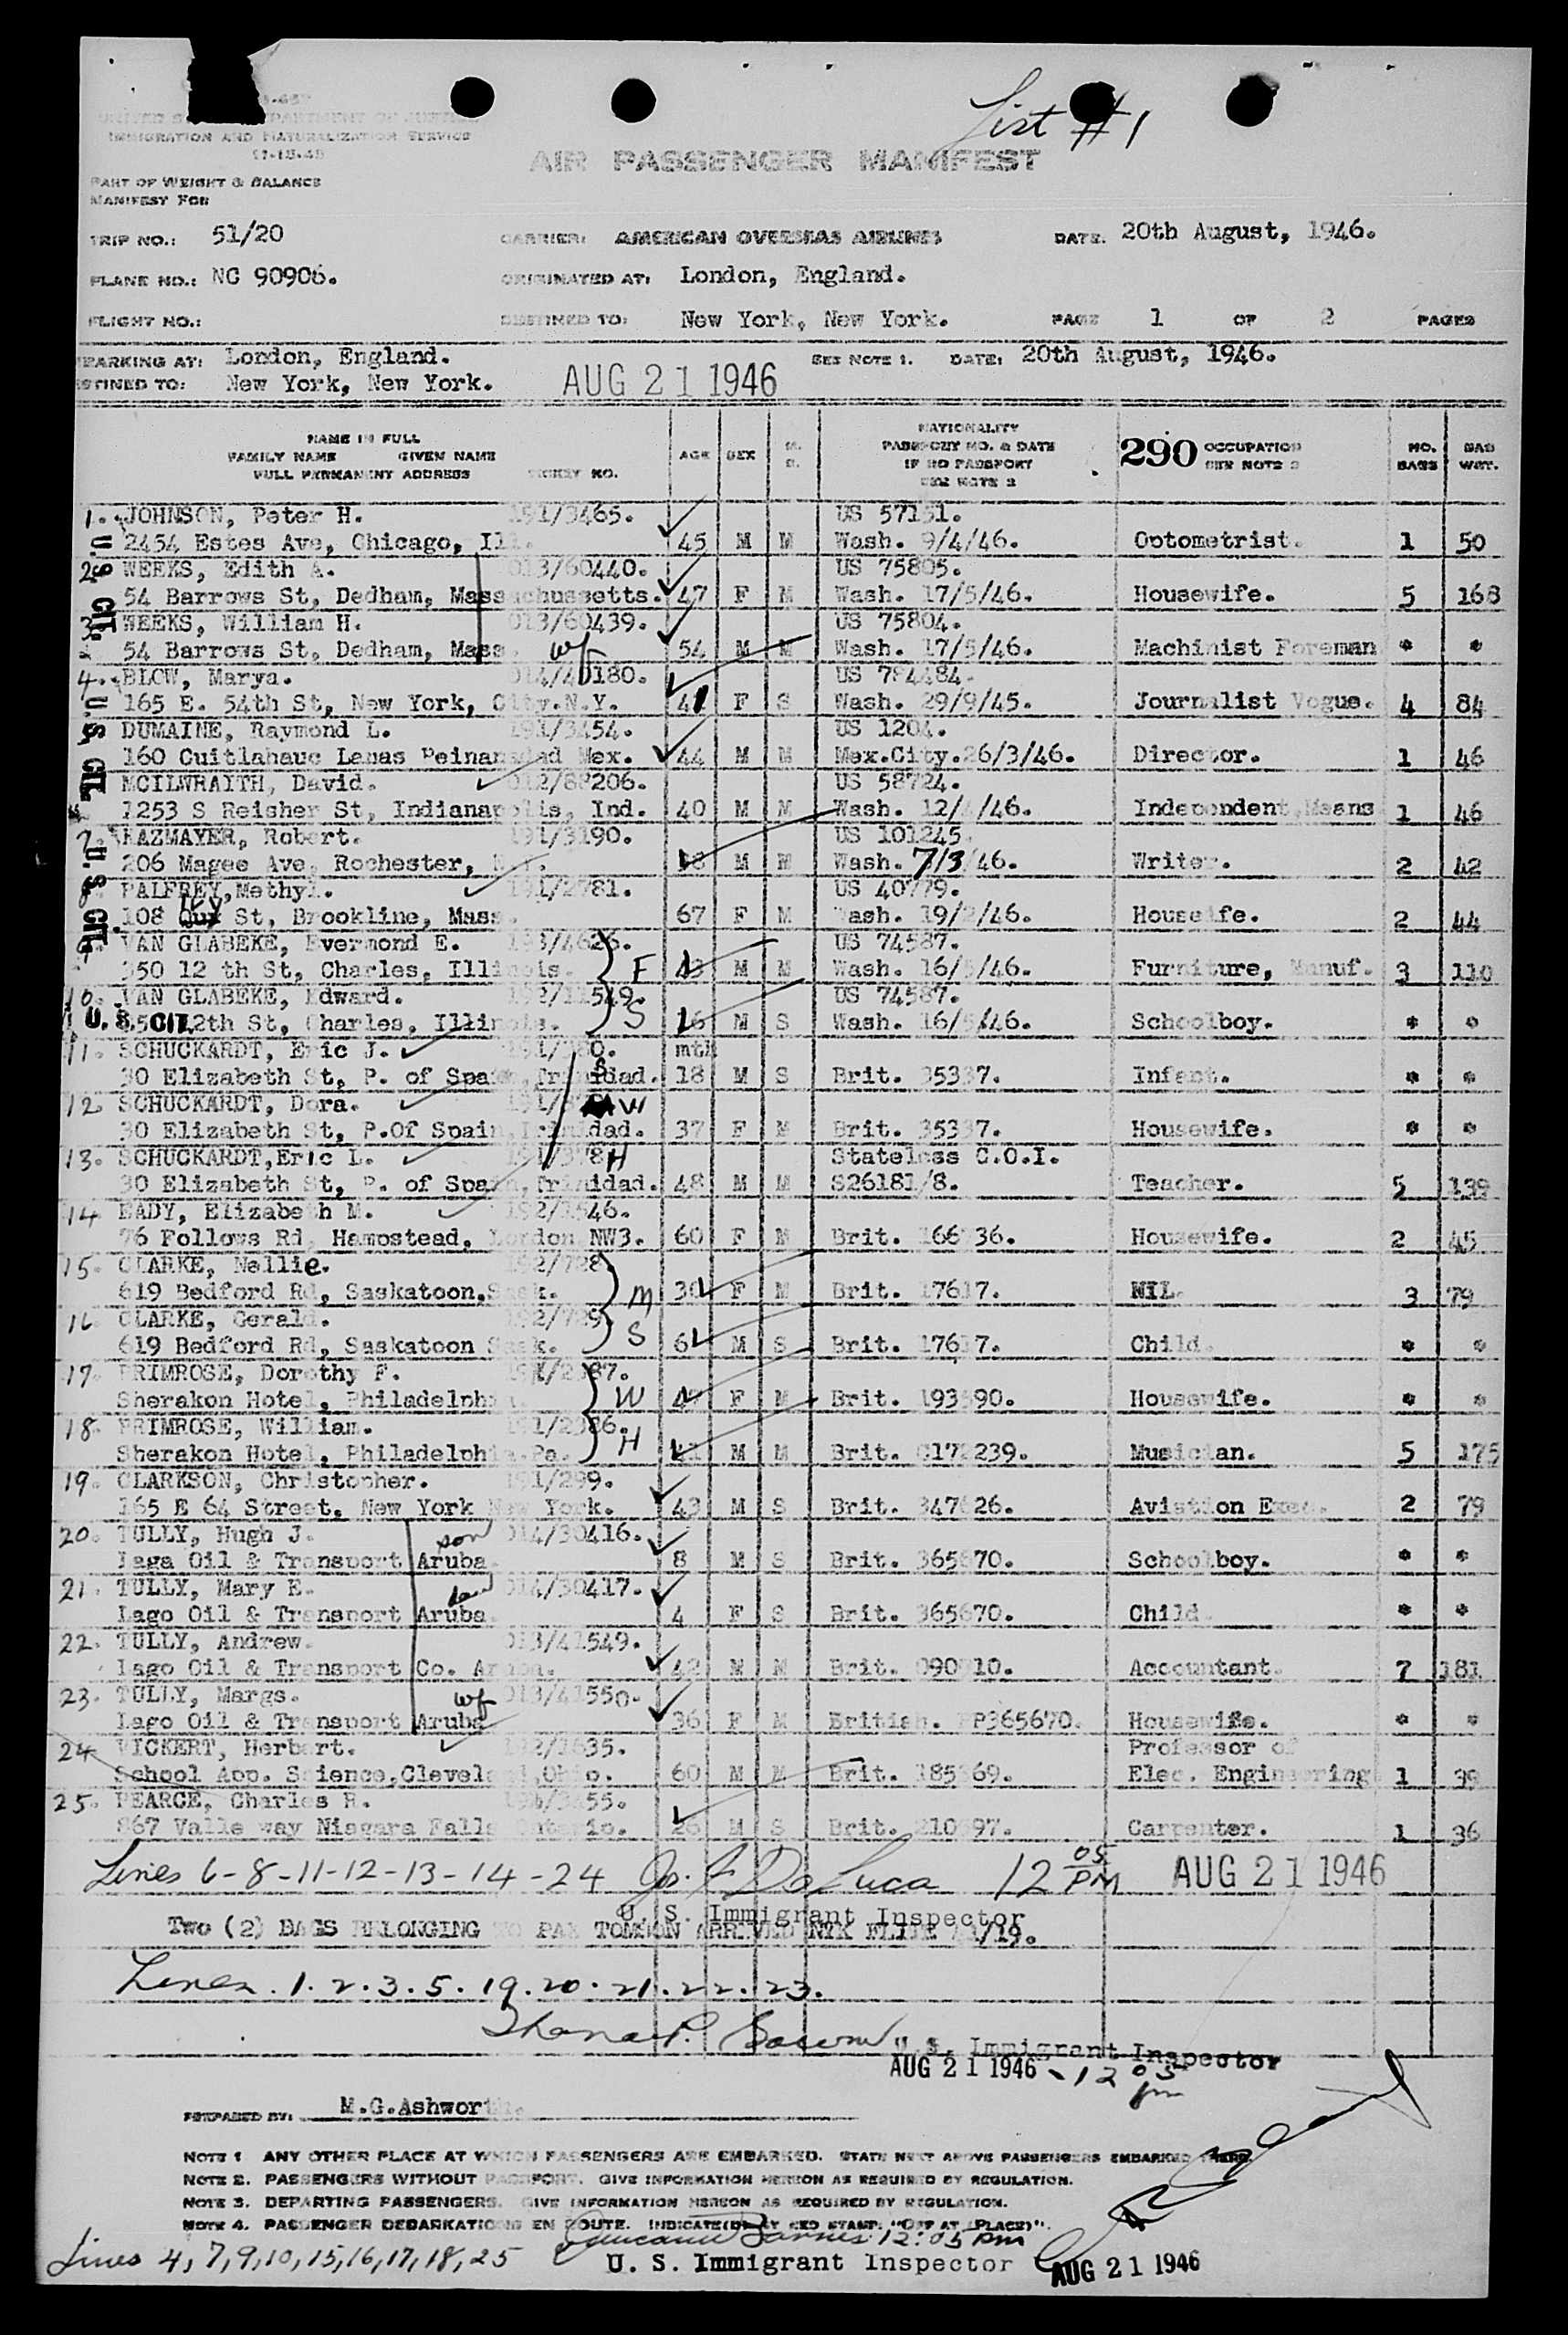 List #1
IMMIGRATION AND NATURALIZATION SERVICE
11-15-45
AIR PASSENGER MANIFEST
PART OF WEIGHT & BALANCE
MANIFEST FOR
TRIP NO.: 51/20 CARRIER: AMERICAN OVERSEAS AIRLINES DATE. 20th August, 1946.
PLANE NO.: NC 90906. ORIGINATED AT: London, England.
FLIGHT NO.: DESTINED TO: New York, New York. PAGE 1 OF 2 PAGES
BARKING AT: London, England. SEE NOTE 1. DATE: 20th August, 1946.
STINED TO: New York, New York. AUG 21 1946
NAME IN FULL
FAMILY NAME GIVEN NAME
FULL PERMANENT ADDRESS TICKET NO. AGE SEX
NATIONALITY
PASSPORT NO. & DATE
IF NO PASSPORT
SEE NOTE 2
290 OCCUPATION
SEE NOTE 2
NO. BAGS
BAG WGT.
1. JOHNSON, Peter H. 191/3465. US 57151.
2454 Estes Ave, Chicago, Ill. 45 M M Wash. 9/4/46. Optometrist. 1 50
2. WEEKS, Edith A. 013/60440. US 75805.
54 Barrows St, Dedham, Massachussetts. 47 F M Wash. 17/5/46. Housewife. 5 168
3. WEEKS, William H. 013/60439. US 75804.
54 Barrows St, Dedham, Mass. wf 54 M M Wash. 17/5/46. Machinist Foreman * *
4. BLOW, Marya. 014/40180. US 784484.
165 E. 54th St, New York, City.N.Y. 41 F S Wash. 29/9/45. Journalist Vogue. 4 84
DUMAINE, Raymond L. 191/3454. US 1204.
160 Cuitlahauc Lamas Mex. 44 M M Mex.City.26/3/46. Director. 1 46
MCILWRAITH, David. 012/88206. US 58724.
1253 S Reisher St, Indianapolis, Ind. 40 M M Wash. /46. Independent Means 1 46
7. HAZMAYER, Robert. 191/3190. US 101245.
206 Magee Ave, Rochester, N.Y. M M Wash. 7/3/46. Writer. 2 42
8. PALFREY, Methyl. 191/2781. US 40779.
108 Ivy St, Brookline, Mass. 67 F M Wash. 19/ /46. Housewife. 2 44
VAN GLABEKE, Evermond E. US 74587.
350 12 th St, Charles, Illinois. F 43 M M Wash. 16/5/46. Furniture, Manuf. 3 110
10. VAN GLABEKE, Edward. 192/11549. US 74587.
12th St, Charles, Illinois. S 16 M S Wash. 16/5/46. Schoolboy. * *
U. S. CIT.
U. S. CIT.
U. S. CIT.
U. S. CIT.
11. SCHUCKARDT, Eric J. mth
30 Elizabeth St, P. of Spain, Trinidad. S 18 M S Brit. 35337. Infant. * *
12 SCHUCKARDT, Dora. W
30 Elizabeth St, P.Of Spain, Trinidad. 37 F M Brit. 35337. Housewife. * *
13. SCHUCKARDT, Eric L. H Stateless C.O.I.
30 Elizabeth St, P. of Spain, Trinidad. 48 M M S26181/8. Teacher. 5 139
14. EADY, Elizabeth M. 192/1546.
76 Fellows Rd, Hampstead, London NW3. 60 F M Brit. Housewife. 2 45
15. CLARKE, Nellie. 192/788
619 Bedford Rd, Saskatoon, Sask. M 30 F M Brit. 17617. NIL. 3 79
16. CLARKE, Gerald. 192/789
619 Bedford Rd, Saskatoon Sask. S 6 M S Brit. 17617. Child. * *
17. PRIMROSE, Dorothy F. 191/2387.
Sherakon Hotel, Philadelphia. W F M Brit. Housewife. * *
18. PRIMROSE, William. 191/2386.
Sherakon Hotel, Philadelphia.Pa. H M M Brit. Musician. 5 175
19. CLARKSON, Christopher. 191/299.
165 E 64 Street. New York New York. 43 M S Brit. 347626. Aviation Exec. 2 79
20. TULLY, Hugh J. son 014/30416.
Laga Oil & Transport Aruba. 8 M S Brit. 365670. Schoolboy. * *
21. TULLY, Mary E. 014/30417.
Lago Oil & Transport Aruba. 4 F S Brit. 365670. Child. * *
22. TULLY, Andrew. 013/41549.
Lago Oil & Transport Co. Aruba. 42 M M Brit. Accountant. 7 181
23. TULLY, Margs. wf 013/41550.
Lago Oil & Transport Aruba 36 F M British. PP365670. Housewife. * *
24 VICKERT, Herbert. 192/1635. Professor of
School App. Science, Cleveland, Ohio. 60 M M Brit. Elec. Engineering 1 39
25. PEARCE, Charles R.
867 Valle way Niagara Falls Ontario. 26 M S Brit. Carpenter. 1 36
Lines 6-8-11-12-13-14-24 Jos. F. De Luca 12 05 PM AUG 21 1946
U. S. Immigrant Inspector
TWO (2) BAGS BELONGING TO PAX TOMSON ARRIVED NYK FLITE /19.
Lines. 1. 2. 3. 5. 19. 20. 21. 22. 23.
U. S. Immigrant Inspector
AUG 21 1946 - 12 05 pm
PREPARED BY: M.G.Ashworth.
NOTE 1 ANY OTHER PLACE AT WHICH PASSENGERS ARE EMBARKED. STATE NEXT ABOVE PASSENGERS EMBARKED THERE.
NOTE 2. PASSENGERS WITHOUT PASSPORT. GIVE INFORMATION HEREON AS REQUIRED BY REGULATION.
NOTE 3. DEPARTING PASSENGERS. GIVE INFORMATION HEREON AS REQUIRED BY REGULATION.
NOTE 4. PASSENGER DEBARKATIONS EN ROUTE. INDICATE(D) BY RED STAMP: "OFF AT (PLACE)".
Lines 4, 7, 9, 10, 15, 16, 17, 18, 25 12:05 PM
U. S. Immigrant Inspector AUG 21 1946